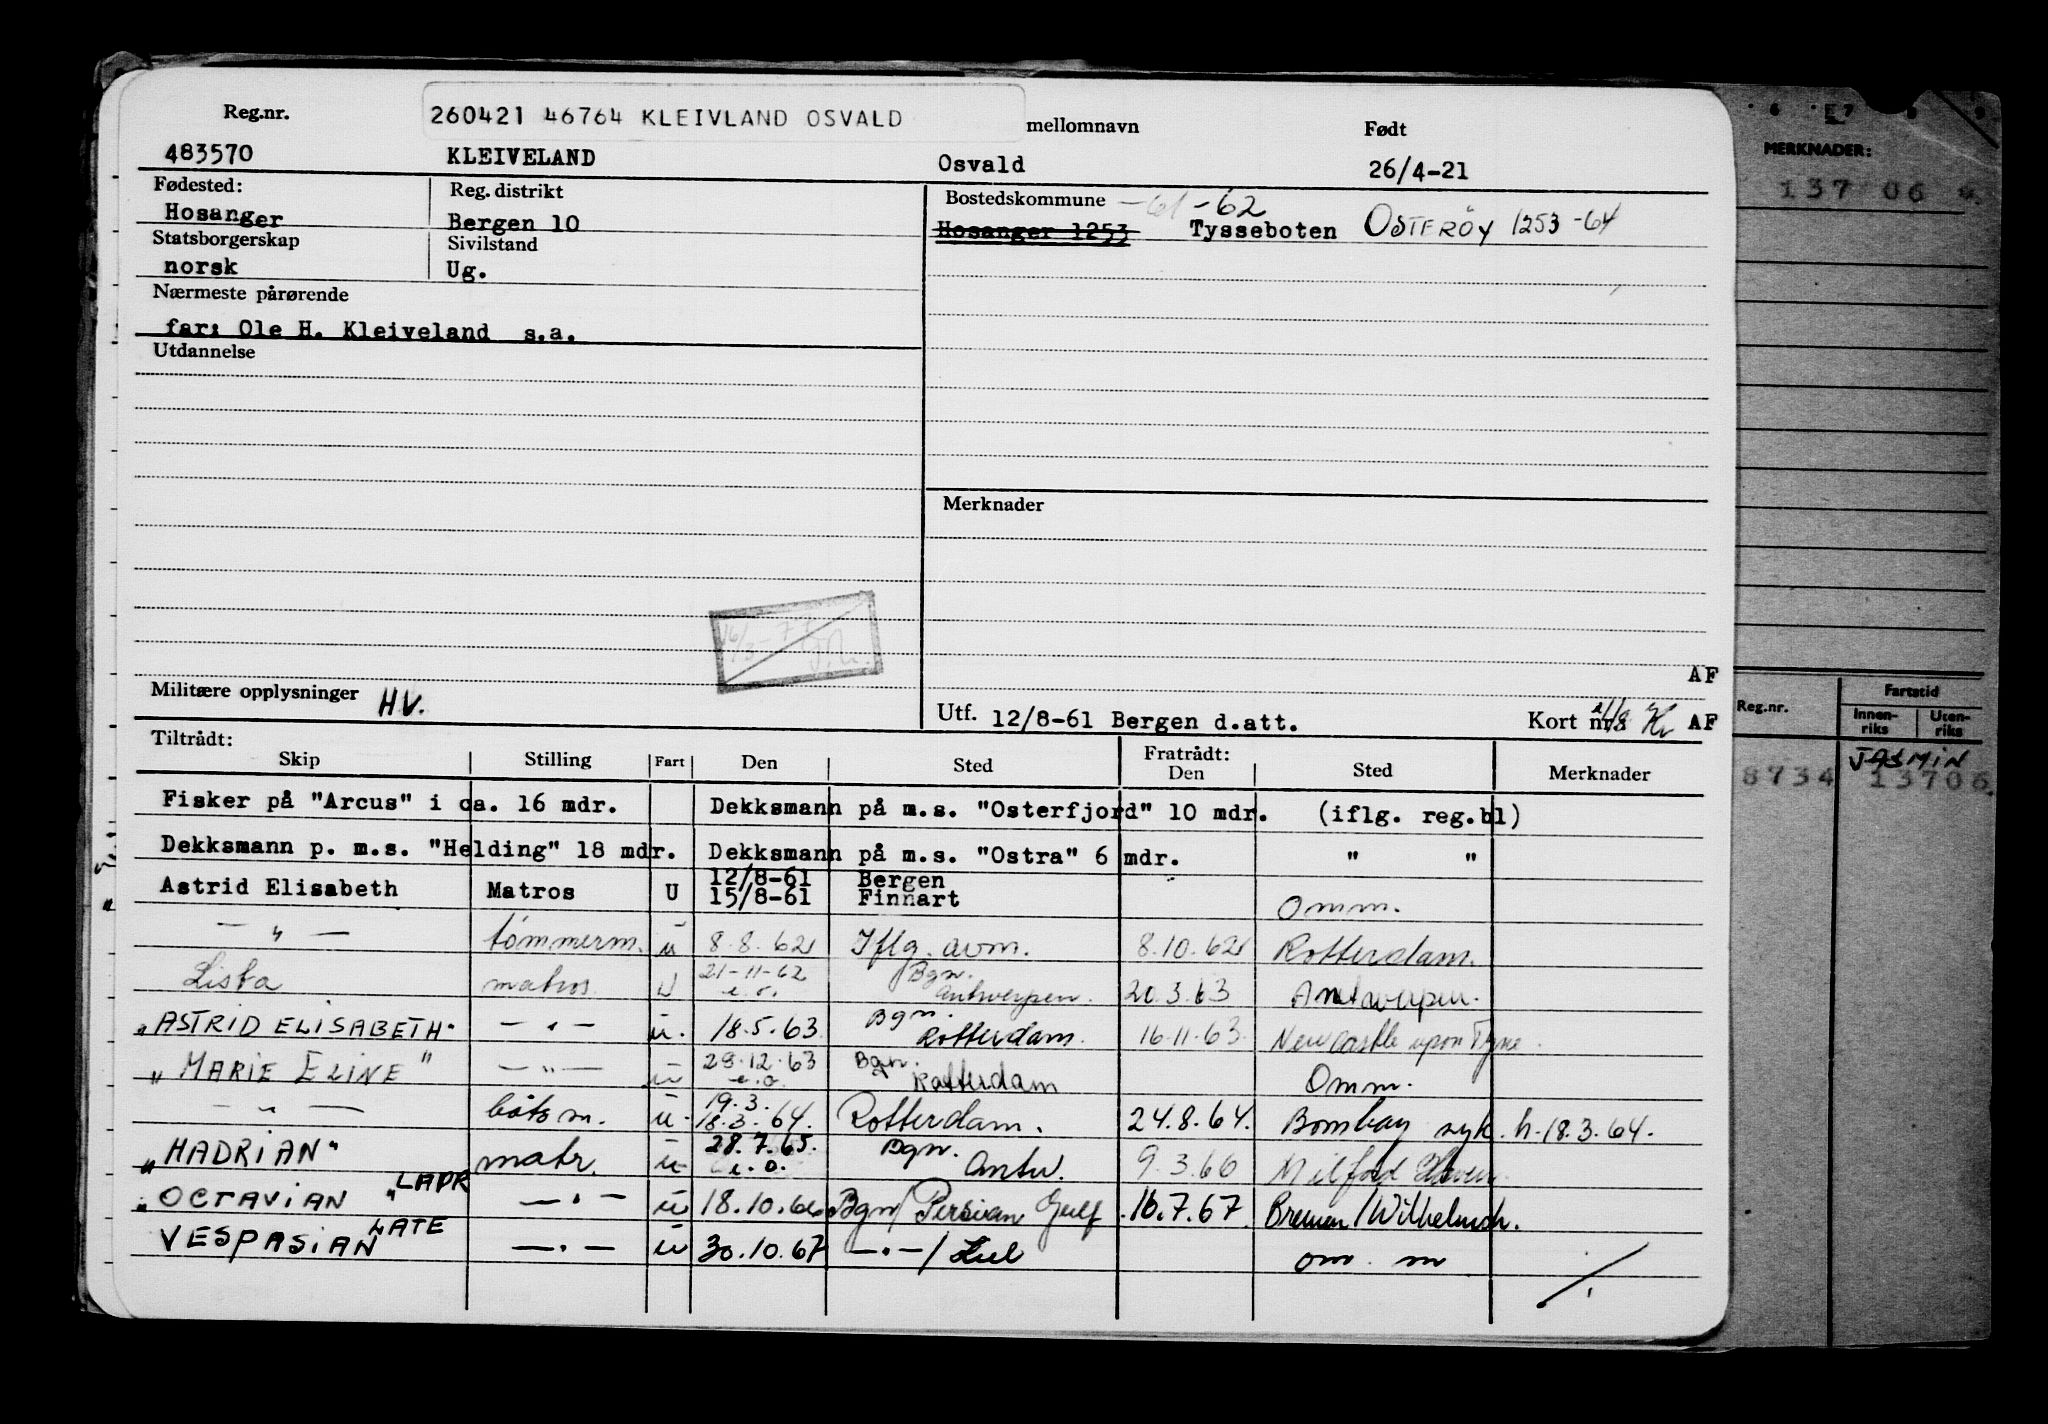 260421 46764 KLEIVLAND OSVALD
Reg.nr. mellomnavn Født
483570 KLEIVELAND Osvald 26/4-21
Fødested: Reg. distrikt Bostedskommune -61 -62
Hosanger Bergen 10 Hosanger 1253 Tysseboten OSTERÖY 1253 -64
Statsborgerskap Sivilstand
norsk Ug.
Nærmeste pårørende
far: Ole H. Kleiveland s.a.
Utdannelse
Merknader
16/3-77
AF
Militære opplysninger HV.
Utf. 12/8-61 Bergen d.att. Kort nr. AF
Tiltrådt: Fratrådt:
Skip Stilling Fart Den Sted Den Sted Merknader
Fisker på "Arcus" i ca. 16 mdr. Dekksmann på m.s. "Osterfjord" 10 mdr. (iflg. reg.bl)
Dekksmann p. m.s. "Helding" 18 mdr. Dekksmann på m.s. "Ostra" 6 mdr. " "
12/8-61 Bergen
Astrid Elisabeth Matros U 15/8-61 Finnart Omm.
— " — tømmerm. u 8.8.62 Iflg. avm. 8.10.62 Rotterdam.
21-11-62 Bgn.
Lista matros. U e.o. Antwerpen. 20.3.63 Antwerpen.
Bgn.
"ASTRID ELISABETH" — " — u. 18.5.63 Rotterdam. 16.11.63. Newcastle upon Tyne.
29.12.63 Bgn.
"MARIE ELINE" — " — u e.o. Rotterdam Omm.
19.3.
— " — båtsm. u. 18.3.64. Rotterdam. 24.8.64. Bombay syk. h. 18.3.64.
28.7.65. Bgn.
"HADRIAN" matr. u e.o. Antw. 9.3.66 Milford Haven.
"OCTAVIAN" LADR — " — u 18.10.66 Bgn/Persian Gulf 16.7.67. Bremen/Wilhelmsh.
VESPASIAN LATE — " — u 30.10.67 — " —/ Kiel om. m
MERKNADER:
137 06
Reg.nr. Fartstid
Innen-riks Uten-riks
JASMIN
8734 13706.